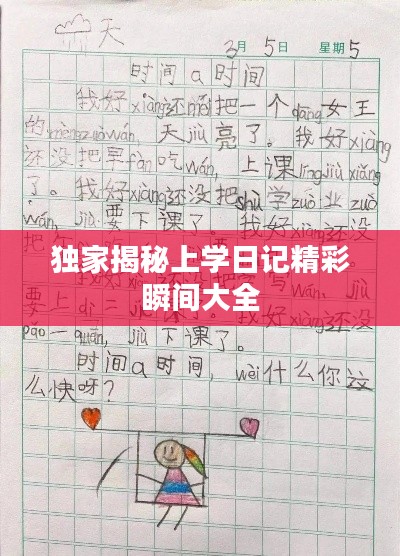 天
3月5日 星期5
时间a时间
我好xiàng还méi把一个dāng女王
的mèngzuòwán，天jiù亮了。我好xiàng
还没把早fàn吃wán，上课língjiùxiǎng
了。我好xiàng还没把shù学zuò业zuò
wán，jiù要下课了。我好xiàng还没
独家揭秘上学日记精彩
瞬间大全
要上di二
pǎo一quān，jiù下课了。
时间a时间，wèi什么你这
么快呀？